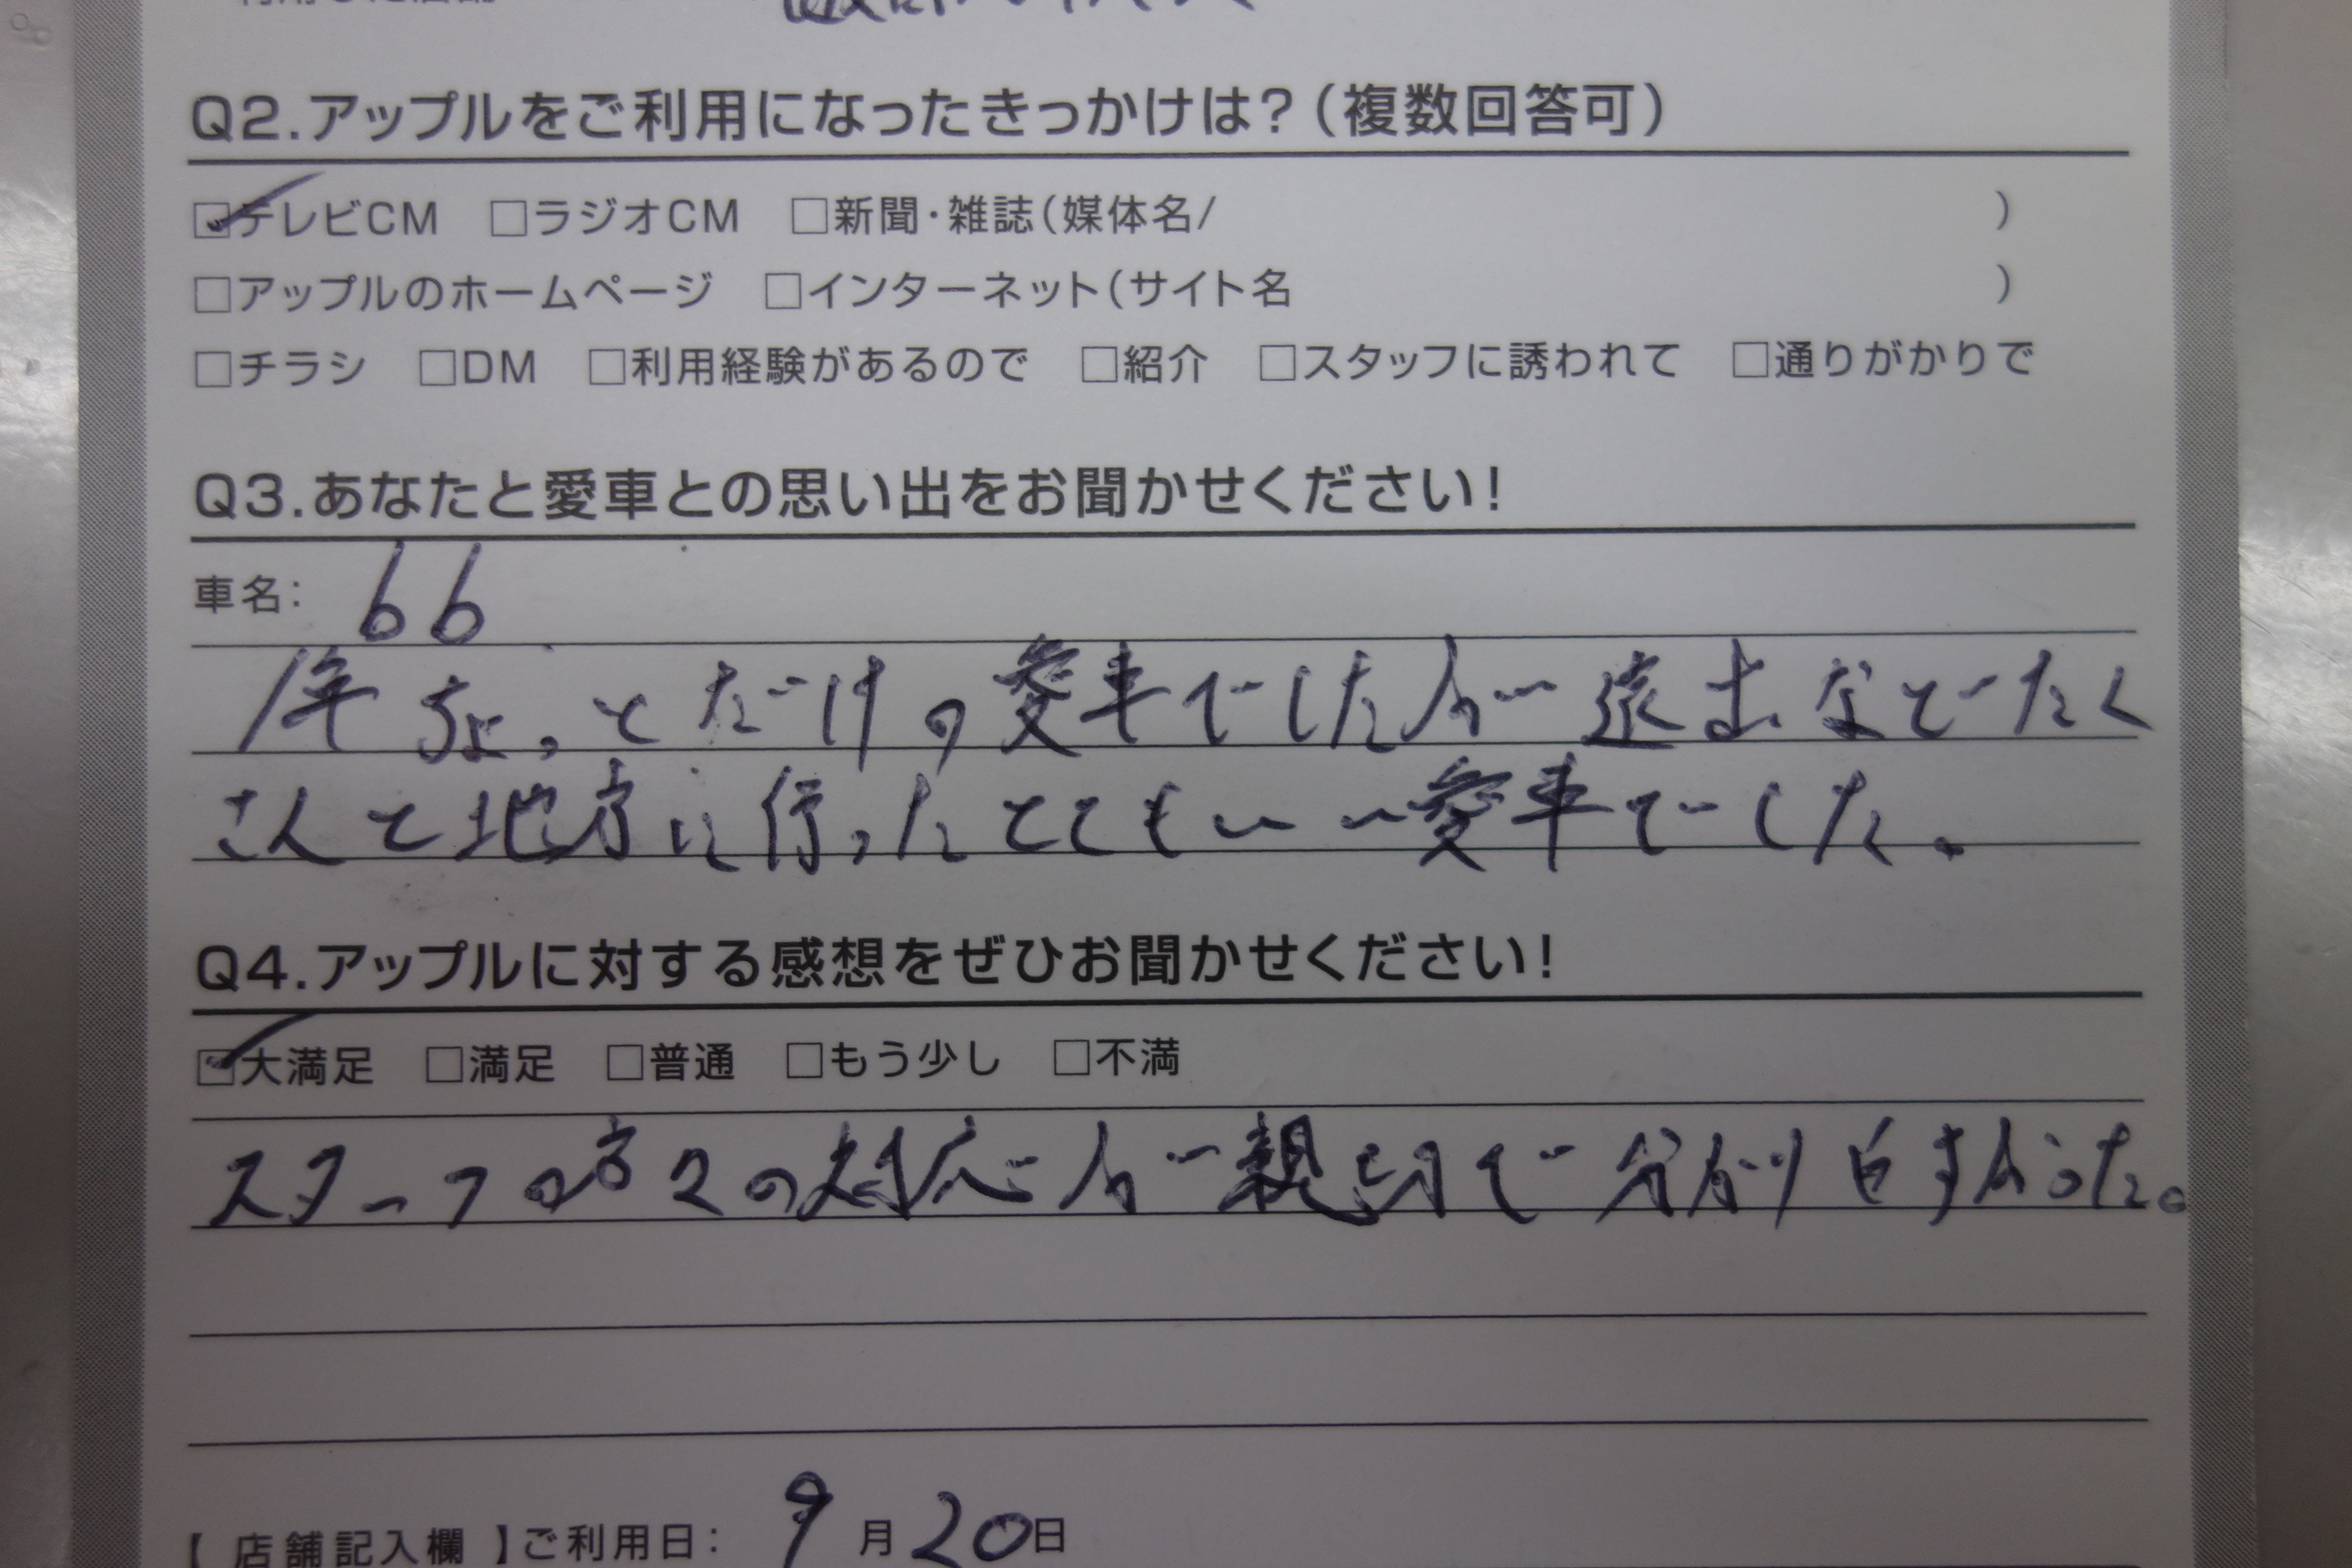 Q2.アップルをご利用になったきっかけは?(複数回答可)
☑テレビCM □ラジオCM □新聞・雑誌(媒体名/ )
□アップルのホームページ □インターネット(サイト名 )
□チラシ □DM □利用経験があるので □紹介 □スタッフに誘われて □通りがかりで
Q3.あなたと愛車との思い出をお聞かせください!
車名: 66
1年ちょっとだけの愛車でしたが遠出などでたく
さんと地方に行ったとてもいい愛車でした。
Q4.アップルに対する感想をぜひお聞かせください!
☑大満足 □満足 □普通 □もう少し □不満
スタッフの方々の対応が親切で分かり
【店舗記入欄】ご利用日: 9月20日